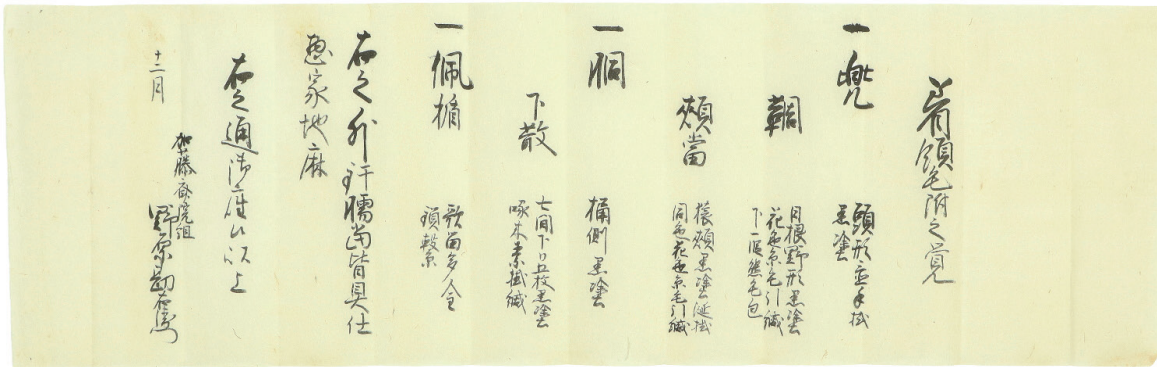 着領毛附之覚
一兜
頭形
黒塗
錣
日根野形黒塗
花色糸毛引縅
下一段熊毛包
頬當
猿頬黒塗涎掛
同色花色糸毛引縅
一胴
桶側黒塗
下散
七間下リ五枚黒塗
啄木素掛縅
一佩楯
鎖繋
右之外
臑當皆具仕
惣家地麻
右之通御座候以上
十二月
加藤 組
野原勘右衛門